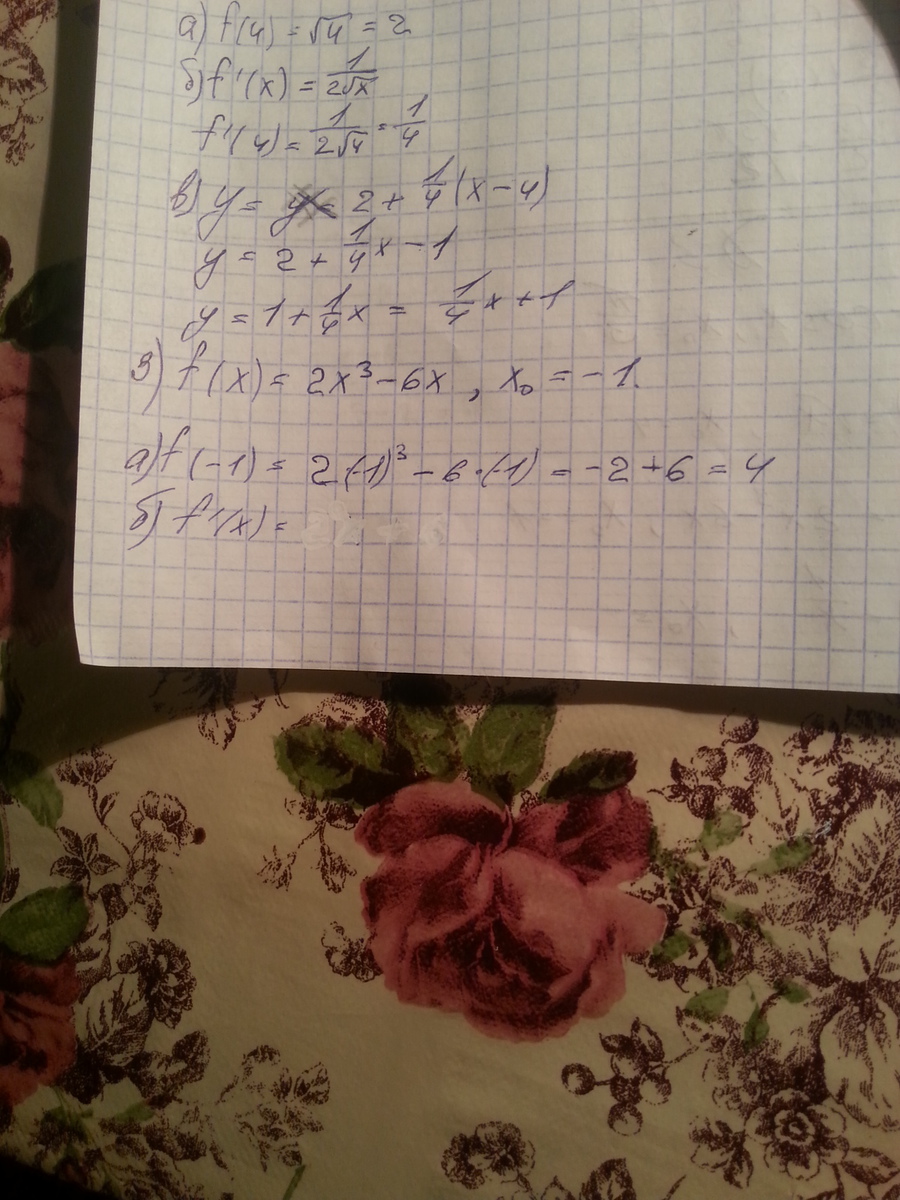 а) f(4) = √4 = 2
б) f'(x) = 1/2√x
f'(4) = 1/2√4 = 1/4
в) y = 2 + 1/4(x-4)
y = 2 + 1/4x - 1
y = 1 + 1/4x = 1/4x + 1
3) f(x) = 2x³ - 6x , x₀ = -1.
а) f(-1) = 2·(-1)³ - 6·(-1) = -2 + 6 = 4
б) f'(x) =